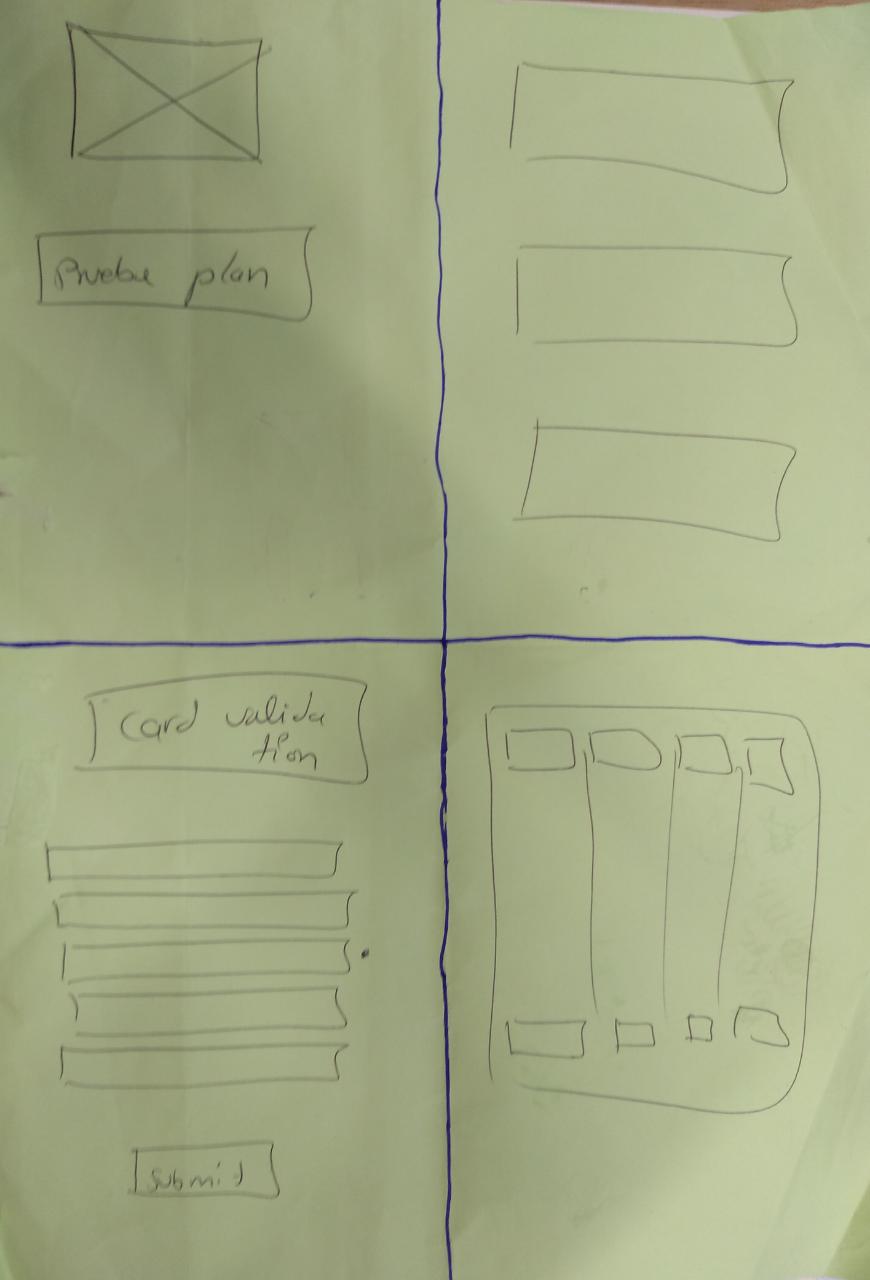 Pruebe plan
Card valida
tion
Submit